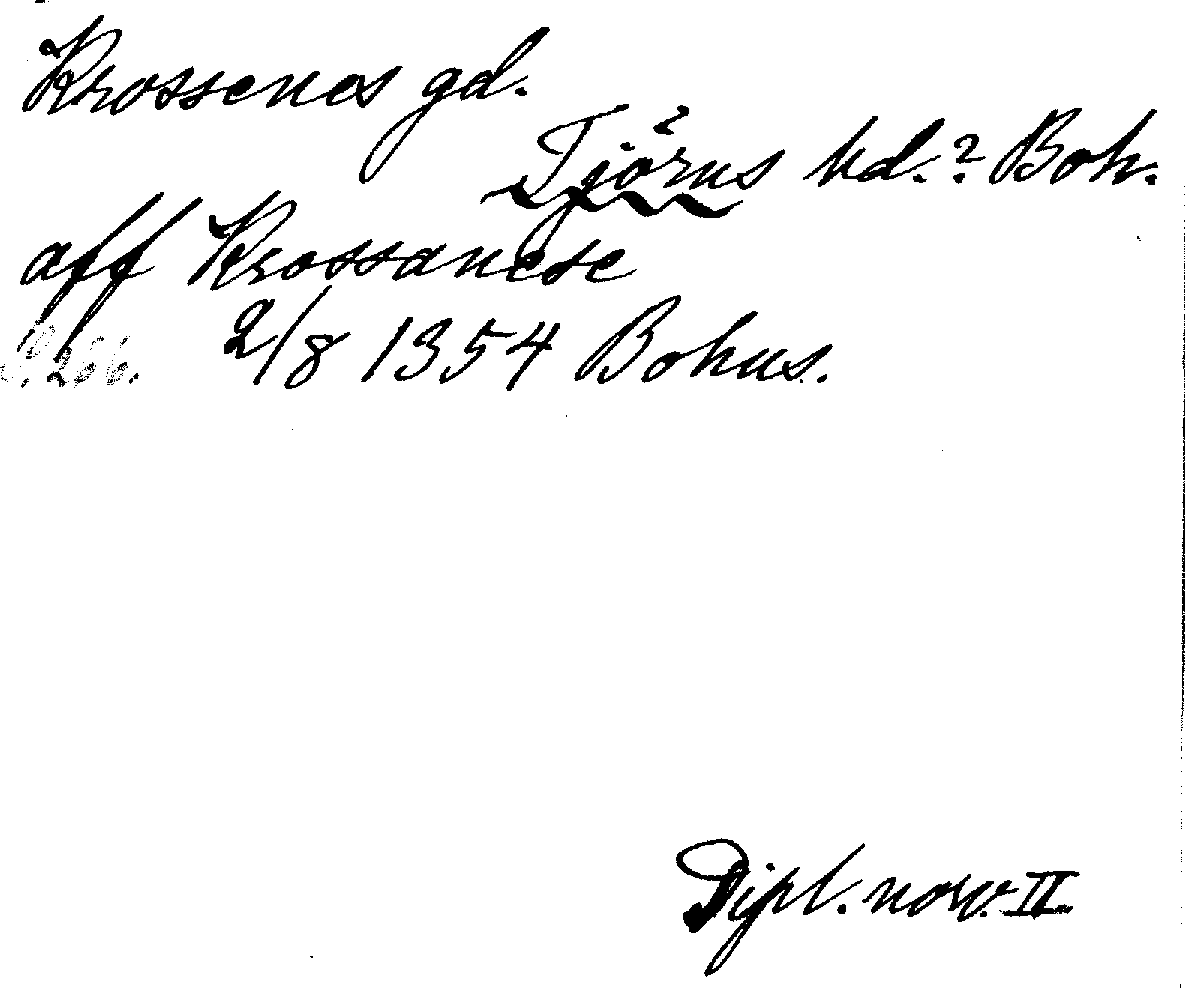 Krossenes gd.
Tjörns hd.? Boh.
aff Krossanese
S. 266. 2/8 1354 Bohus.
Dipl. norv. II.